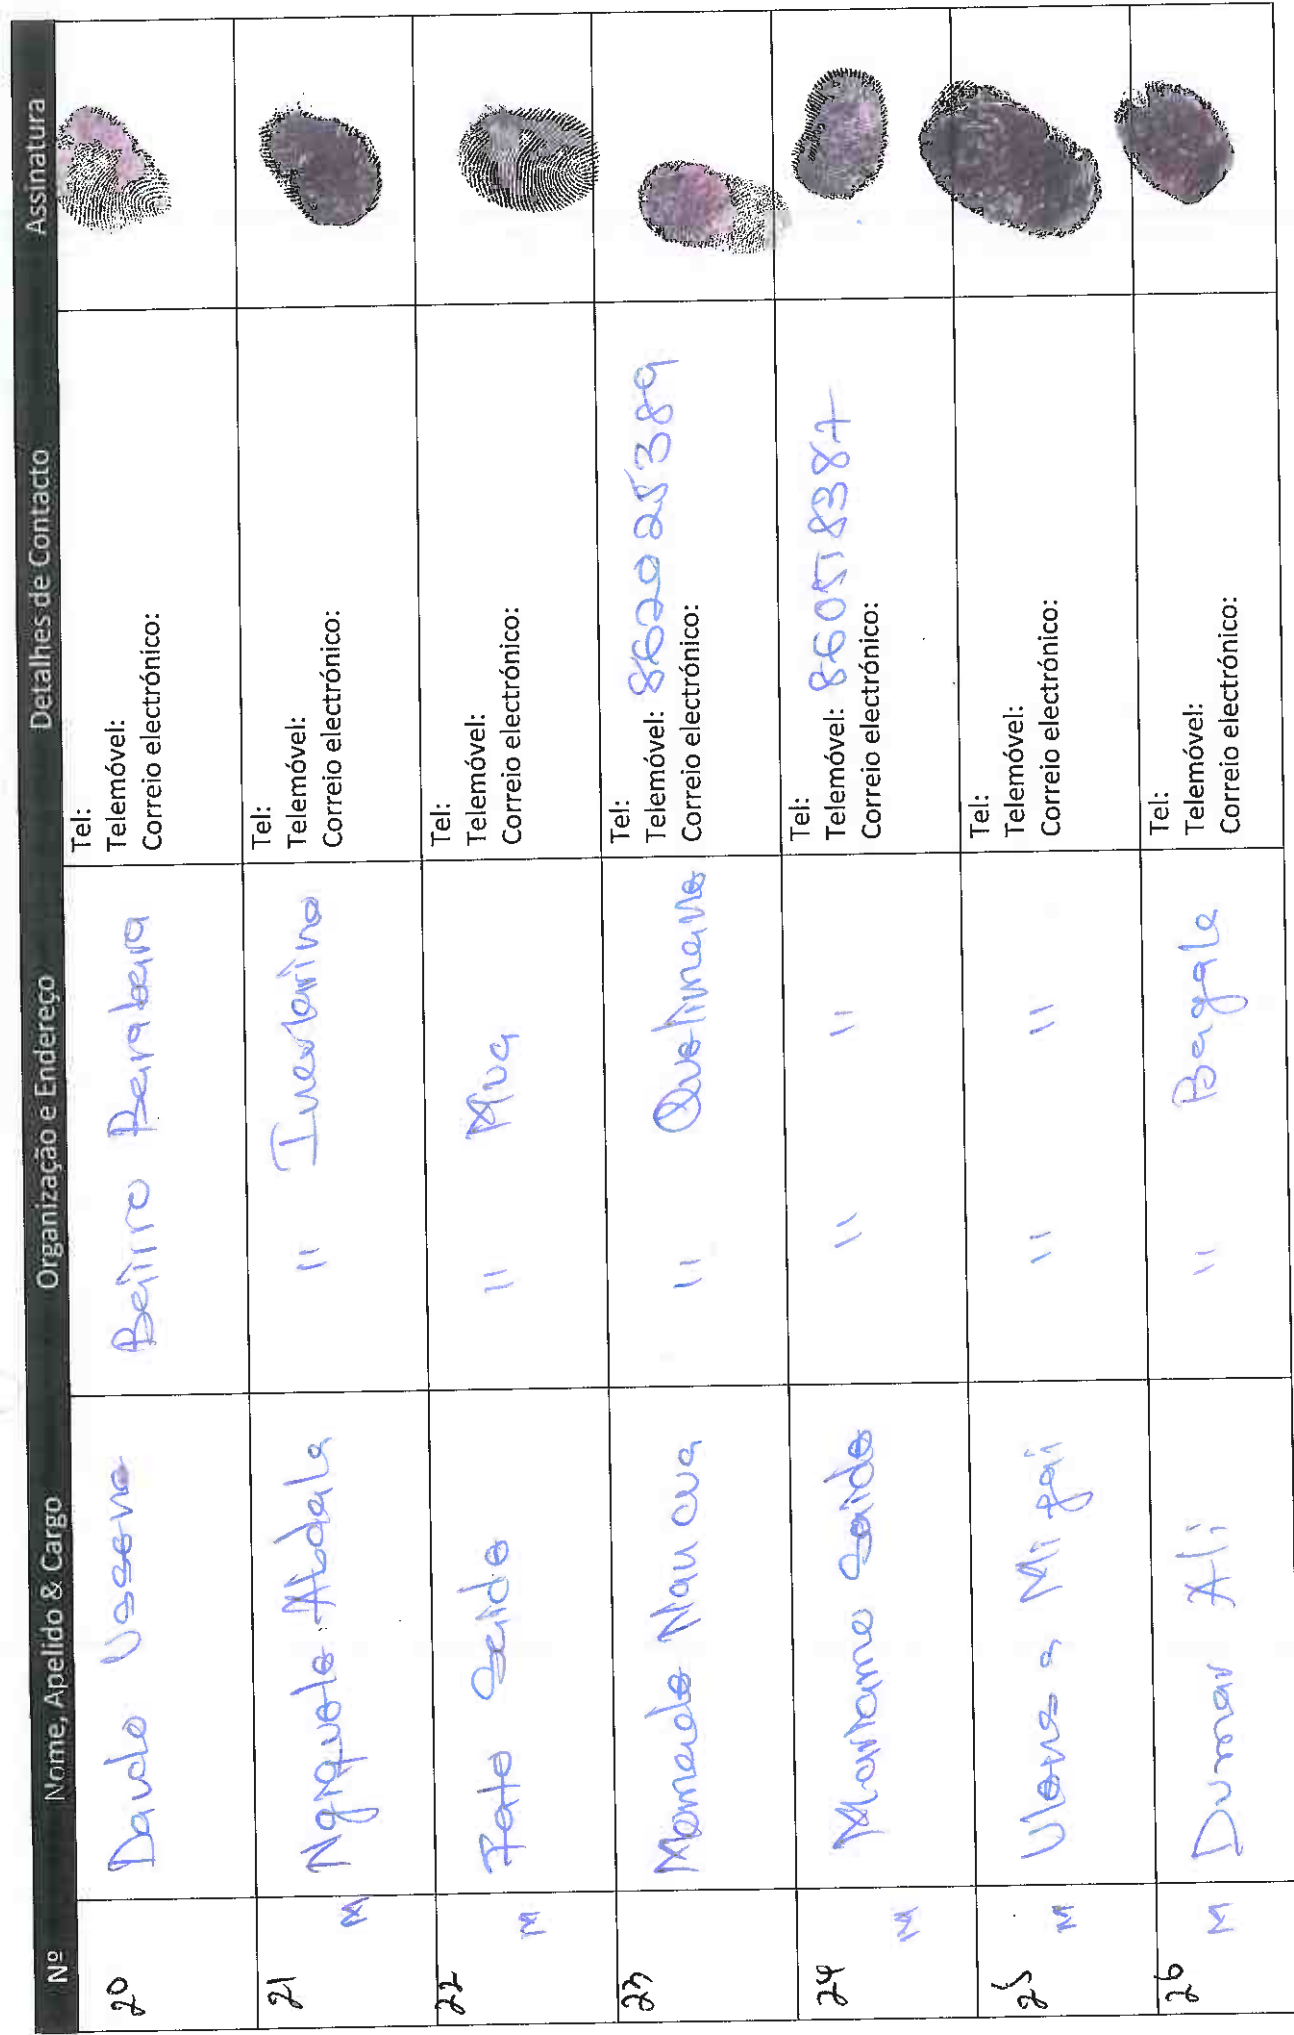 Nº Nome, Apelido & Cargo Organização e Endereço Detalhes de Contacto Assinatura
20 Daudo Ussene Bairro Barabara Tel:
Telemóvel:
Correio electrónico:
21 M Ngiquele Abdala " Tel:
Telemóvel:
Correio electrónico:
22 M Fato Saide " Mua Tel:
Telemóvel:
Correio electrónico:
23 Mamade " Quelimane Tel:
Telemóvel: 862025389
Correio electrónico:
24 M Mariamo Saide " " Tel:
Telemóvel: 860518387
Correio electrónico:
25 M " " Tel:
Telemóvel:
Correio electrónico:
26 M Dumar Ali " Bagala Tel:
Telemóvel:
Correio electrónico: